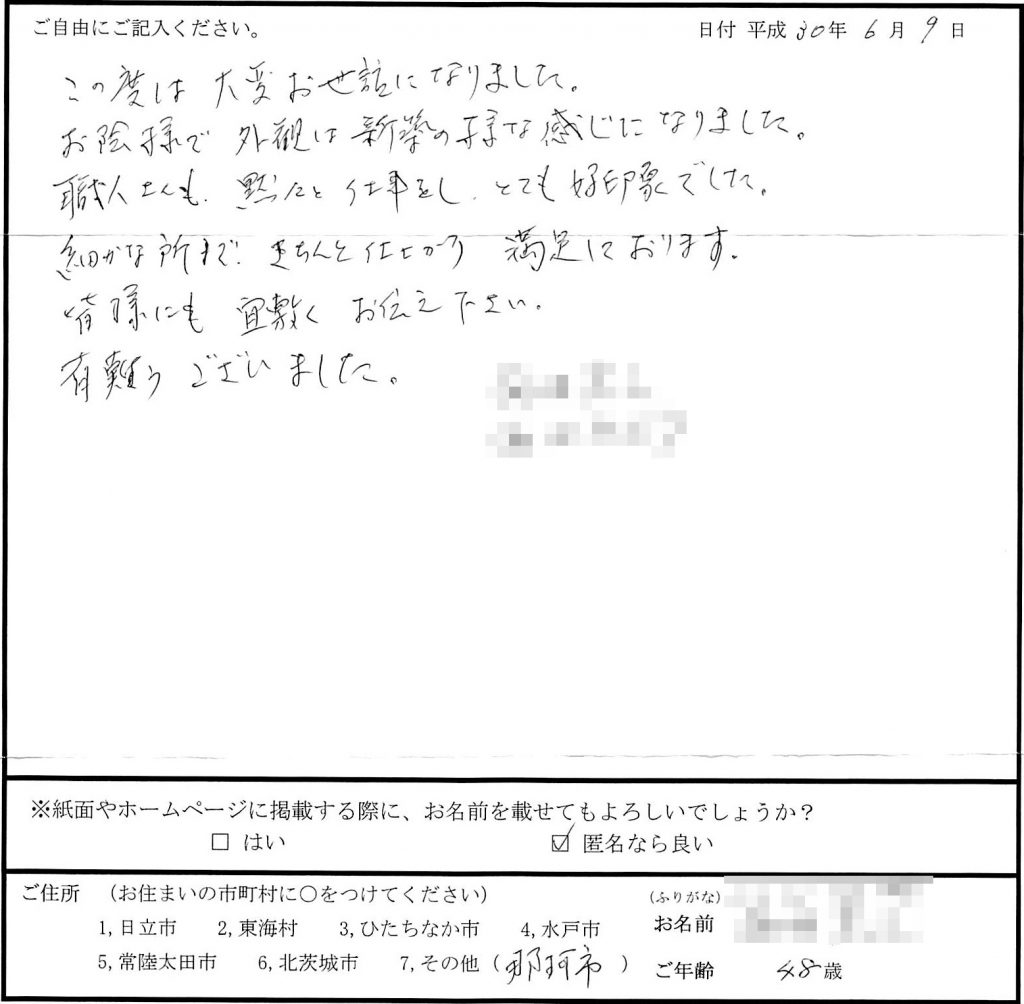 ご自由にご記入ください。 日付 平成 30年 6月 9日
この度は 大変お世話になりました。
お陰様で 外観は新築の様な感じになりました。
職人さんも、黙々と仕事をし、とても好印象でした。
細かな所まで、きちんと仕上がり 満足しております。
皆様にも 宜敷く お伝え下さい。
有難う ございました。
※紙面やホームページに掲載する際に、お名前を載せてもよろしいでしょうか？
□ はい ☑ 匿名なら良い
ご住所 （お住まいの市町村に○をつけてください）
1,日立市 2,東海村 3,ひたちなか市 4,水戸市
5,常陸太田市 6,北茨城市 7,その他（那珂市）
（ふりがな）
お名前
ご年齢 48歳